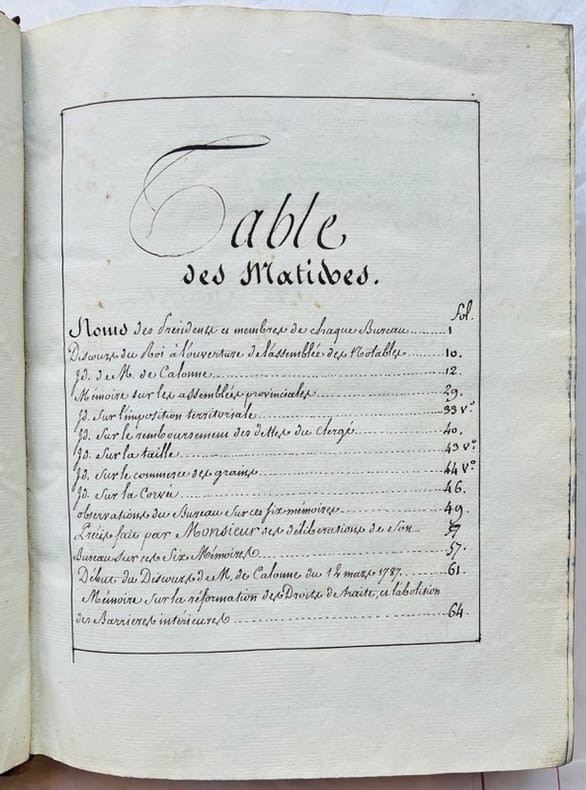 Table
des Matieres.
fol.
Noms des Présidents et membres de chaque Bureau........ 1
Discours du Roi à l'ouverture de l'assemblée des Notables........ 10.
Id. de M. de Calonne........ 12.
Mémoire sur les assemblées provinciales........ 29.
Id. sur l'imposition territoriale........ 33 v°
Id. sur le remboursement des dettes du clergé........ 40.
Id. sur la taille........ 43 v°
Id. sur le commerce des grains........ 44 v°
Id. sur la Corvée........ 46.
observations du Bureau sur ces six mémoires........ 49.
Précis fait par Monsieur des déliberations de son
Bureau sur ces Six Mémoires........ 57.
Début du Discours de M. de Calonne du 12 mars 1787........ 61.
Mémoire sur la réformation des Droits de traite, et l'abolition
des Barrieres intérieures........ 64.